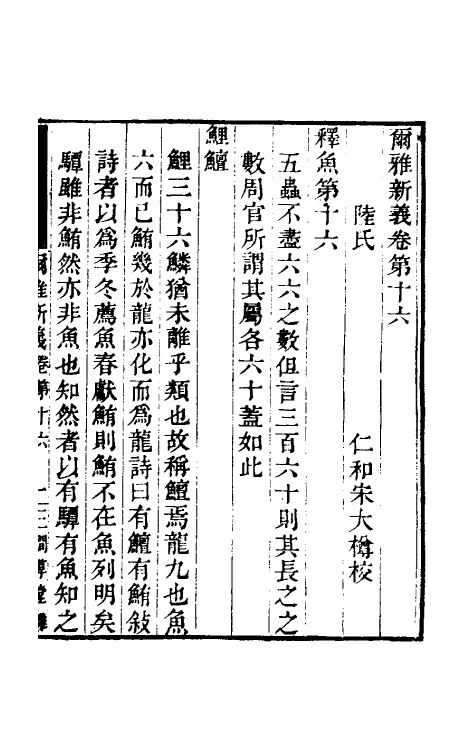 爾雅新義卷第十六
陸氏 仁和宋大樽校
釋魚第十六
五蟲不盡六六之數但言三百六十則其長之之
數周官所謂其屬各六十蓋如此
鯉鱣
鯉三十六鱗猶未離乎類也故稱鱣焉龍九也魚
六而已鮪幾於龍亦化而爲龍詩曰有鱣有鮪敍
詩者以爲季冬薦魚春獻鮪則鮪不在魚列明矣
驔雖非鮪然亦非魚也知然者以有驔有魚知之
爾雅新義卷第十六 一 三閒草堂雕